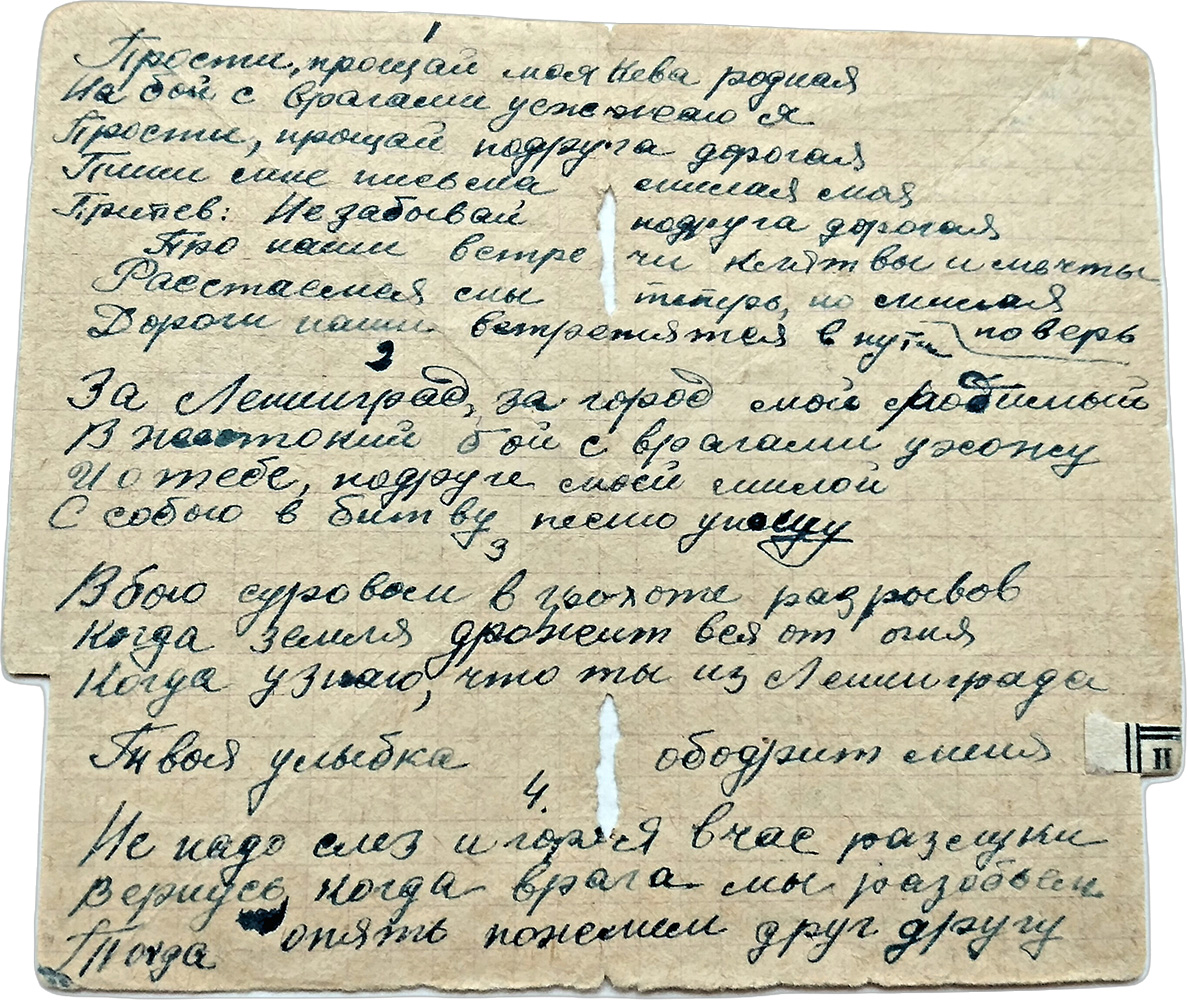 1
Прости, прощай моя Нева родная
На бой с врагами уезжаю я
Прости, прощай подруга дорогая
Пиши мне письма милая моя
Припев: Не забывай подруга дорогая
Про наши встречи клятвы и мечты
Расстаемся мы теперь, но милая поверь
Дороги наши встретятся в пути
2
За Ленинград, за город мой любимый
В жестокий бой с врагами ухожу
И о тебе, подруге моей милой
С собою в битву песню уношу
3
В бою суровом в грохоте разрывов
Когда земля дрожит вся от огня
Когда узнаю, что ты из Ленинграда
Твоя улыбка ободрит меня
4.
Не надо слез и горя в час разлуки
Вернусь, когда врага мы разобьем
Тогда опять пожмем друг другу
II